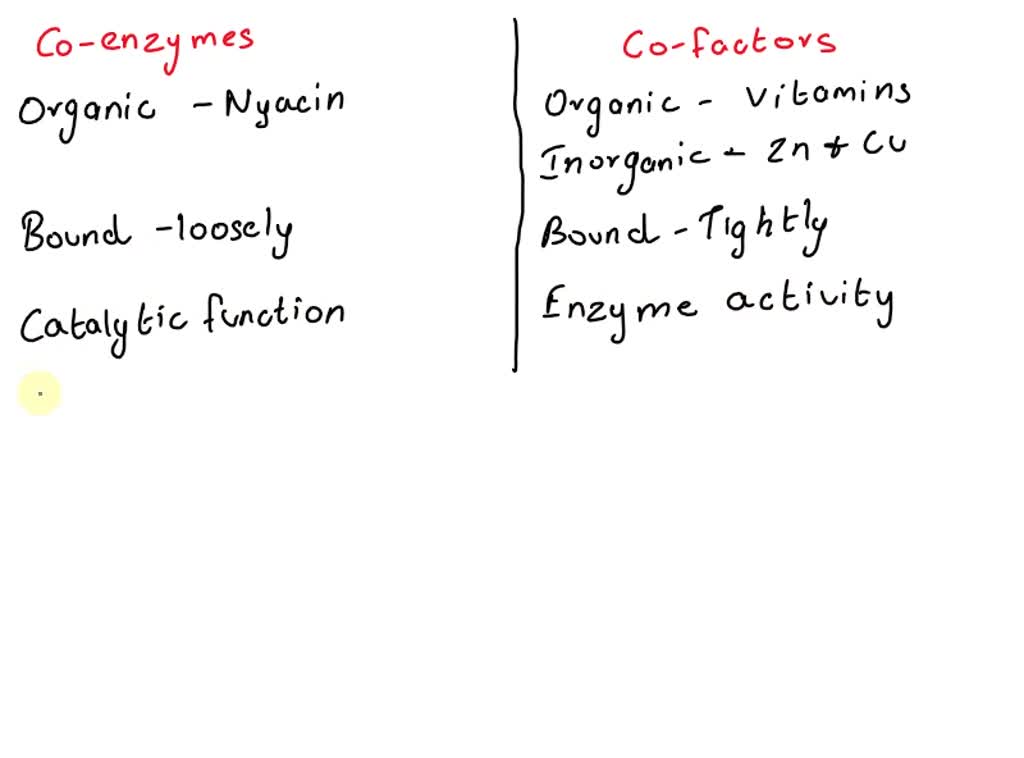 Co-enzymes
Organic - Nyacin
Bound - loosely
Catalytic function
Co-factors
Organic - Vitamins
Inorganic - Zn + Cu
Bound - Tightly
Enzyme activity